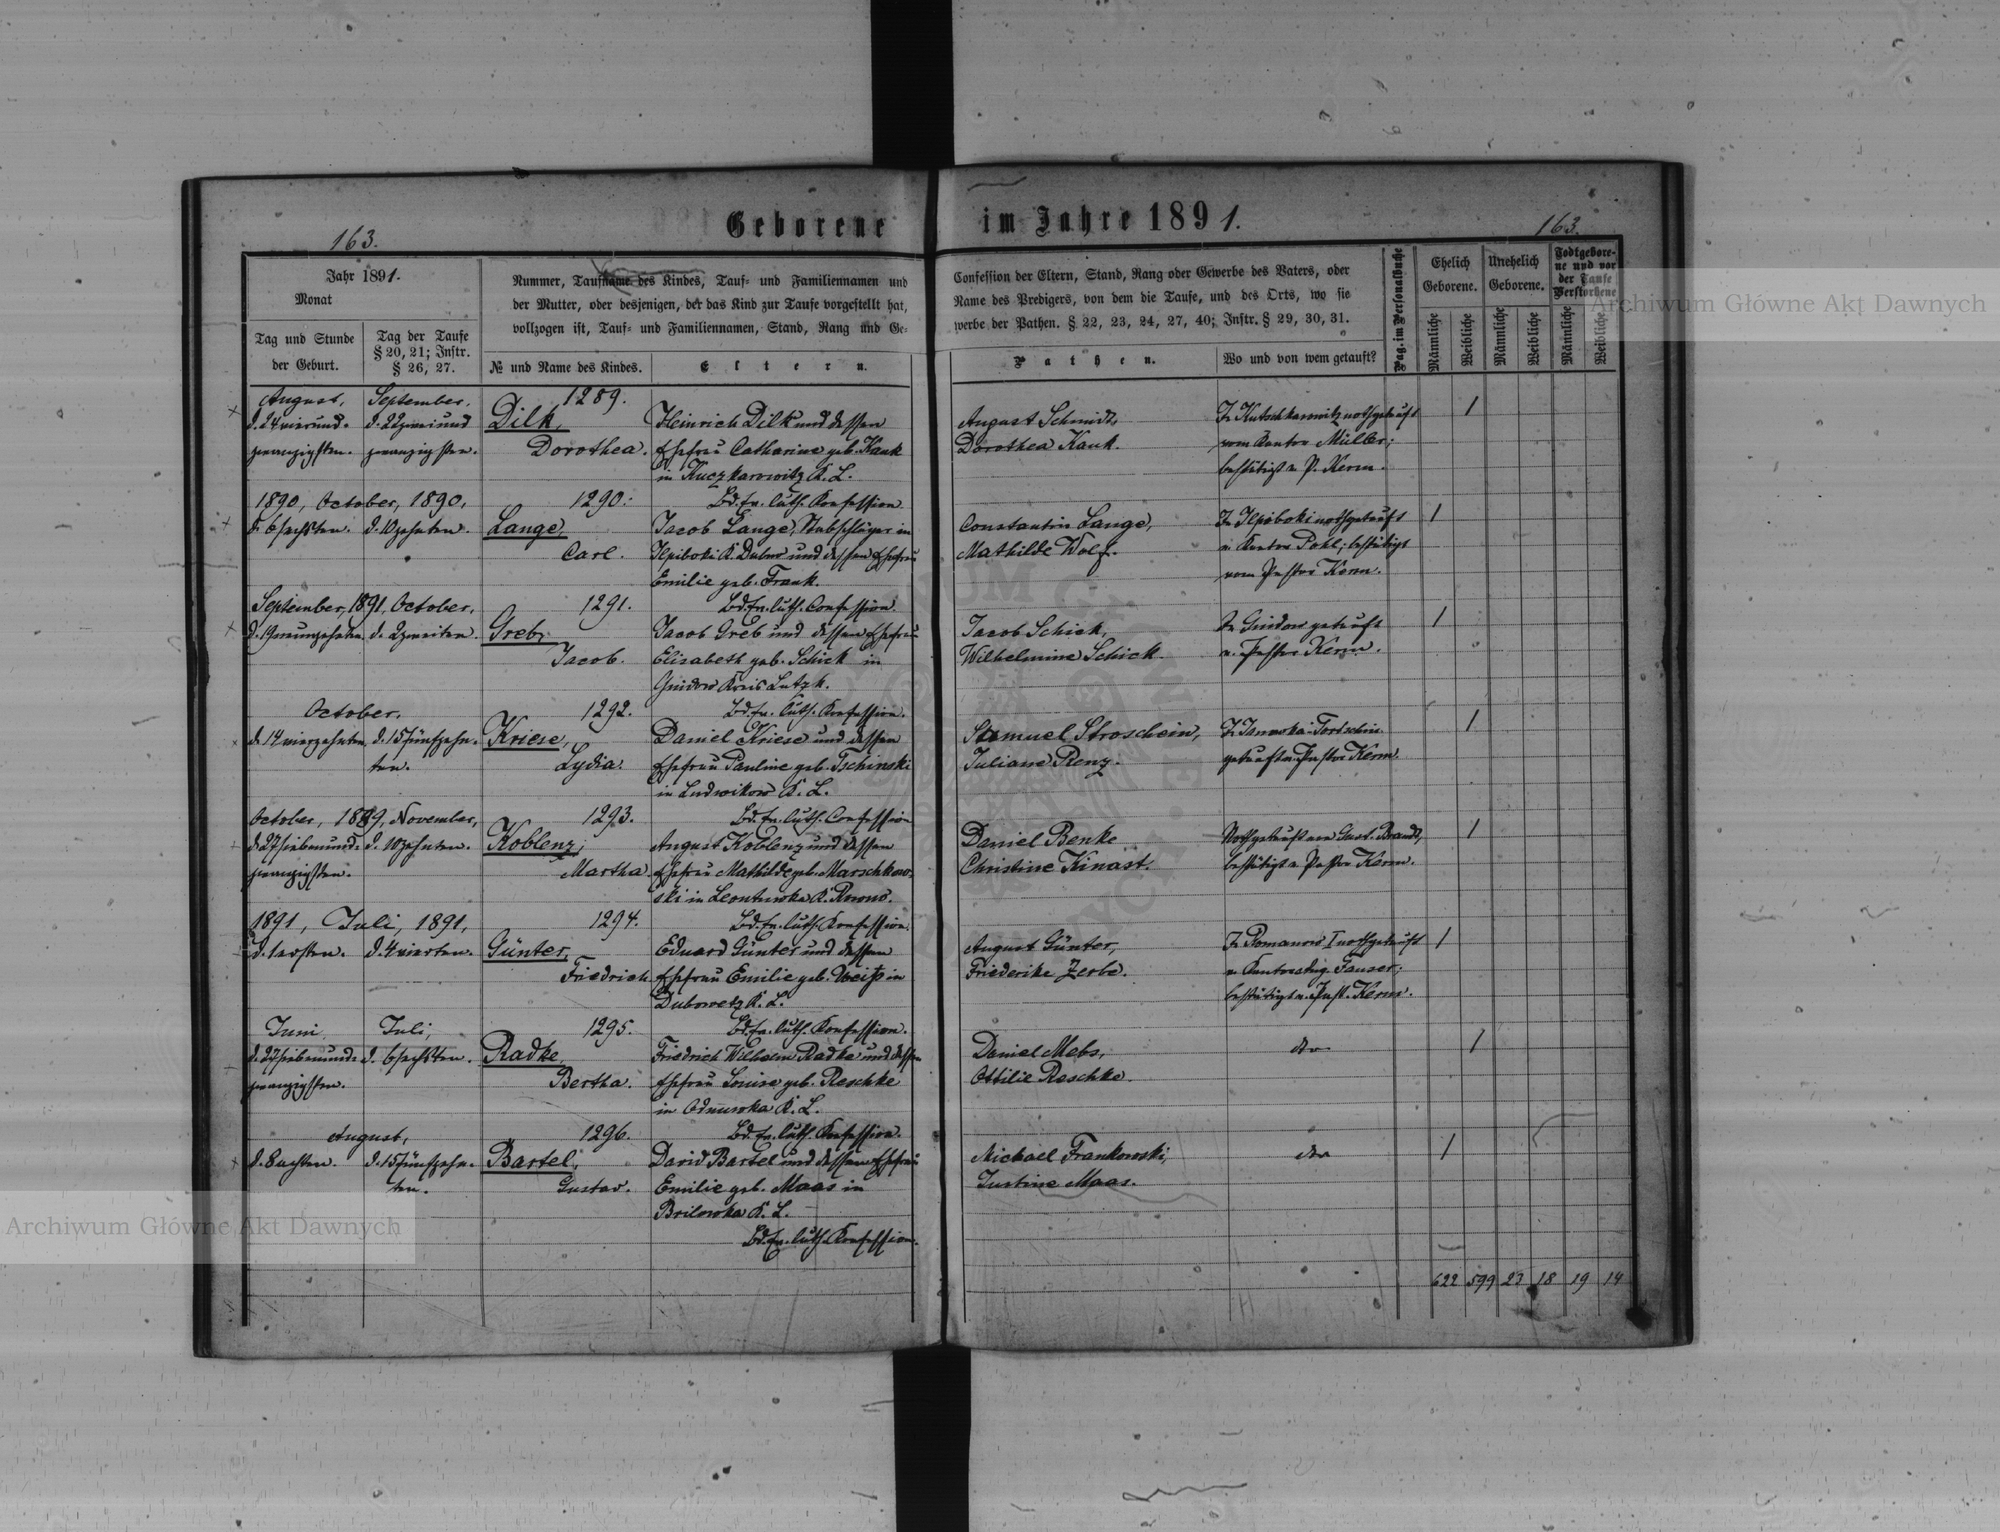 Geborene im Jahre 1891.
163.
163.
Jahr 1891.
Monat
Tag und Stunde
der Geburt.
Tag der Taufe
§ 20, 21; Instr.
§ 26, 27.
Nummer, Taufname des Kindes, Tauf- und Familiennamen und
der Mutter, oder desjenigen, der das Kind zur Taufe vorgestellt hat,
vollzogen ist, Tauf- und Familiennamen, Stand, Rang und Ge-
№ und Name des Kindes.
Eltern.
Confession der Eltern, Stand, Rang oder Gewerbe des Vaters, oder
Name des Predigers, von dem die Taufe, und des Orts, wo sie
werbe der Pathen. § 22, 23, 24, 27, 40; Instr. § 29, 30, 31.
Pathen.
Wo und von wem getauft?
Pag. im Personalbuche
Ehelich
Geborene.
Unehelich
Geborene.
Todtgebore-
ne und vor
der Taufe
Verstorbene
Männliche
Weibliche
Männliche
Weibliche
Männliche
Weibliche
August, September, 1289.
d. 24 vierund- d. 22 zweiund Dilk, Heinrich Dilk und dessen August Schmidt, In Kutschkarowitz nothgetauft 1
zwanzigsten. zwanzigsten. Dorothea. Ehefrau Catharine geb. Kauk Dorothea Kauk. vom Kantor Müller;
in Kuczkarowitz K. L. bestätigt v. P. Kerm.
1890, October, 1890, 1290. Bd. Ev. luth. Konfession
d. 6 sechsten. d. 10 zehnten. Lange, Jacob Lange, Stabschläger in Constantin Lange, 1
Carl. K. Dubno und dessen Ehefrau Mathilde Wolf. v. Kantor Pohl; bestätigt
Emilie geb. Frank. vom Pastor Kerm.
September, 1891, October, 1291. Bd. Ev. luth. Confession.
d. 19 neunzehnten d. 2 zweiten. Greb, Jacob Greb und dessen Ehefrau Jacob Schick, In Gnidow getauft 1
Jacob. Elisabeth geb. Schick in Wilhelmine Schick. v. Pastor Kerm.
Gnidow Kreis Lutzk.
October. 1292. Bd. Ev. luth. Konfession.
d. 14 vierzehnten d. 15 fünfzehn- Kriese, Daniel Kriese und dessen Samuel Stroschein, In Janowka-Tortschin 1
ten. Lydia. Ehefrau Pauline geb. Tschinski Juliane Renz. getauft v. Pastor Kerm.
in Ludwikow K. L.
October, 1889, November, 1293. Bd. Ev. luth. Confession
d. 27 siebenund- d. 10 zehnten. Koblenz, August Koblenz und dessen Daniel Benke Nothgetauft von Gust. Brandt, 1
zwanzigsten. Martha. Ehefrau Mathilde geb. Marschkow- Christine Kinast. bestätigt v. Pastor Kerm.
ski in Leontuwka K. Rowno.
1891, Juli, 1891, 1294. Bd. Ev. luth. Konfession.
d. 1 ersten. d. 4 vierten. Günter, Eduard Günter und dessen August Günter, In Romanow I nothgetauft 1
Friedrich. Ehefrau Emilie geb. Weiß in Friederike Zerbe. v. Gauser;
Dubowetz K. L. bestätigt v. Past. Kerm.
Juni Juli, 1295. Bd. Ev. luth. Konfession.
d. 27 siebenund- d. 6 sechsten. Radke, Friedrich Wilhelm Radke und dessen Daniel Mebs, do 1
zwanzigsten. Bertha. Ehefrau Louise geb. Reschke Ottilie Reschke.
in K. L.
August, 1296. Bd. Ev. luth. Konfession.
d. 8 achten. d. 15 fünfzehn- Bartel, David Bartel und dessen Ehefrau Michael Frankowski, do 1
ten. Gustav. Emilie geb. Maas in Justine Maas.
Brilowka K. L.
Bd. Ev. luth. Konfession.
622 599 23 18 19 14
Archiwum Główne Akt Dawnych
Archiwum Główne Akt Dawnych